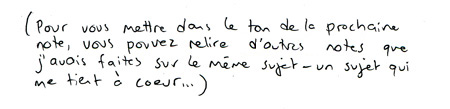 (Pour vous mettre dans le ton de la prochaine
note, vous pouvez relire d'autres notes que
j'avais faites sur le même sujet - un sujet qui
me tient à coeur...)